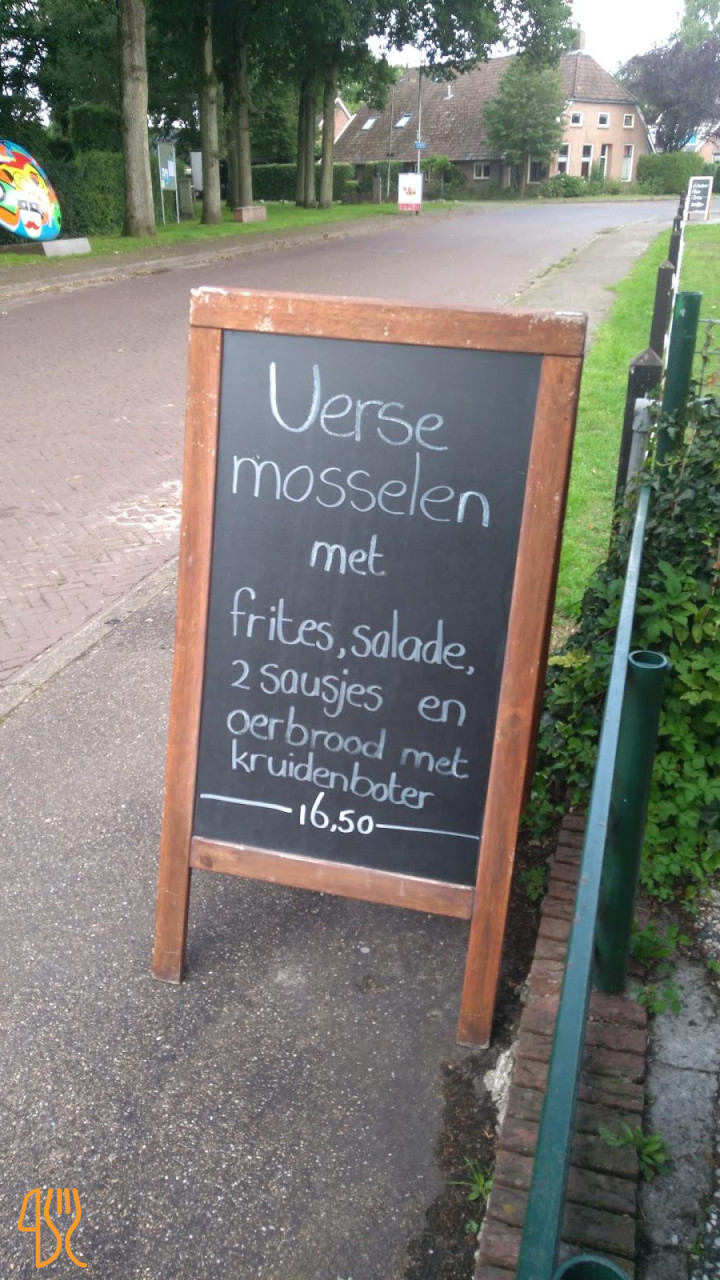 Verse
mosselen
met
frites, salade,
2 sausjes en
oerbrood met
kruidenboter
16,50